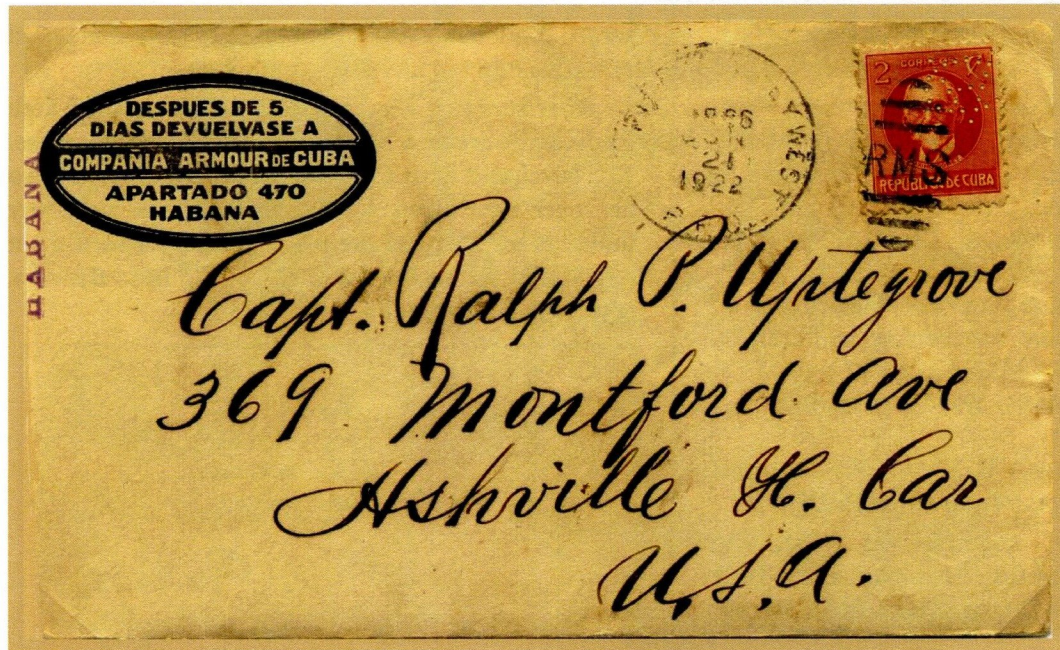 DESPUES DE 5
DIAS DEVUELVASE A
COMPAÑIA ARMOUR DE CUBA
APARTADO 470
HABANA
HABANA
Y WEST
21
1922
2
RMS
REPUBLICA DE CUBA
Capt. Ralph P. Uptegrove
369 Montford Ave
Ashville N. Car
U.S.A.